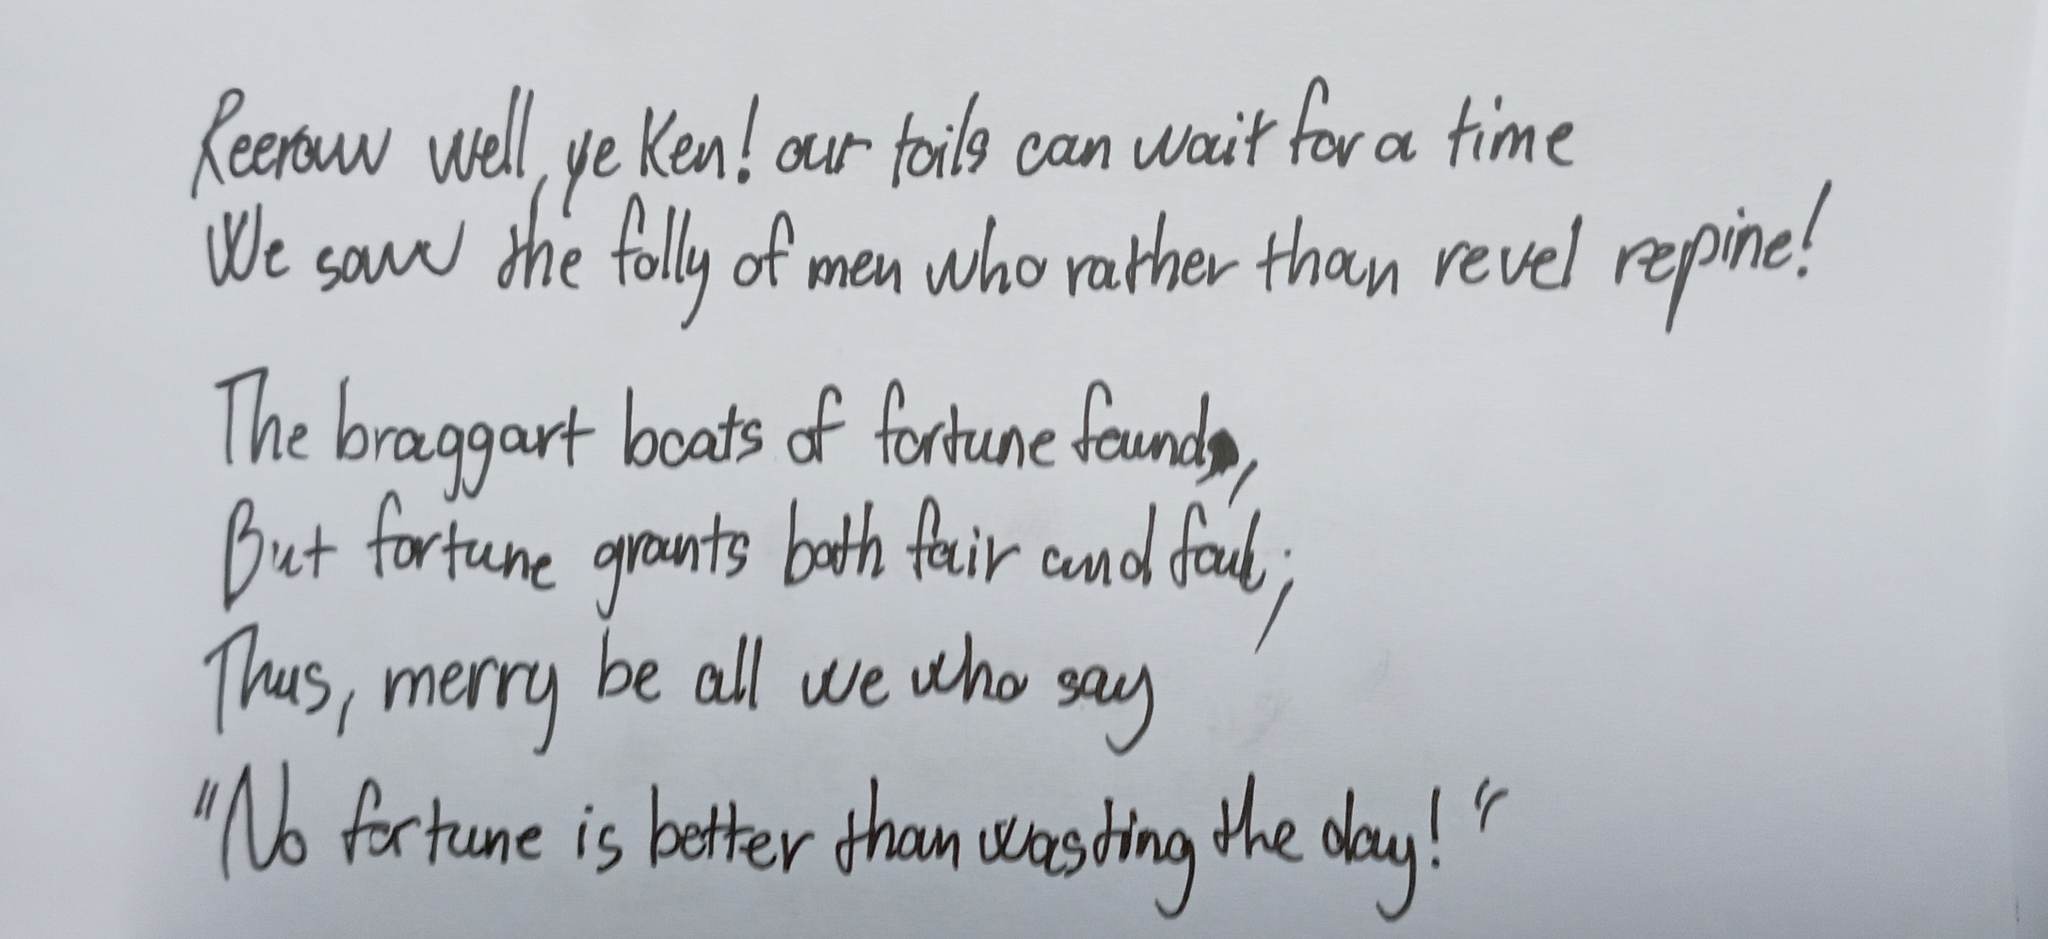 Reerouw well, ye Ken! our toils can wait for a time
We saw the folly of men who rather than revel repine!
The braggart boats of fortune found,
But fortune grants both fair and foul;
Thus, merry be all we who say
"No fortune is better than wasting the day!"